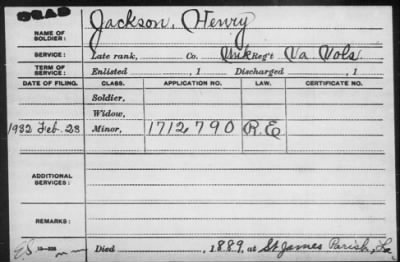 DEAD
NAME OF SOLDIER: Jackson, Henry
SERVICE: Late rank, Co. Unk Reg't Va Vols
TERM OF SERVICE: Enlisted , 1 Discharged , 1
DATE OF FILING. CLASS. APPLICATION NO. LAW. CERTIFICATE NO.
Soldier,
Widow,
1932 Feb. 23 Minor, 1712790 R.E
ADDITIONAL SERVICES:
REMARKS:
Died , 1889, at St James Parish, La